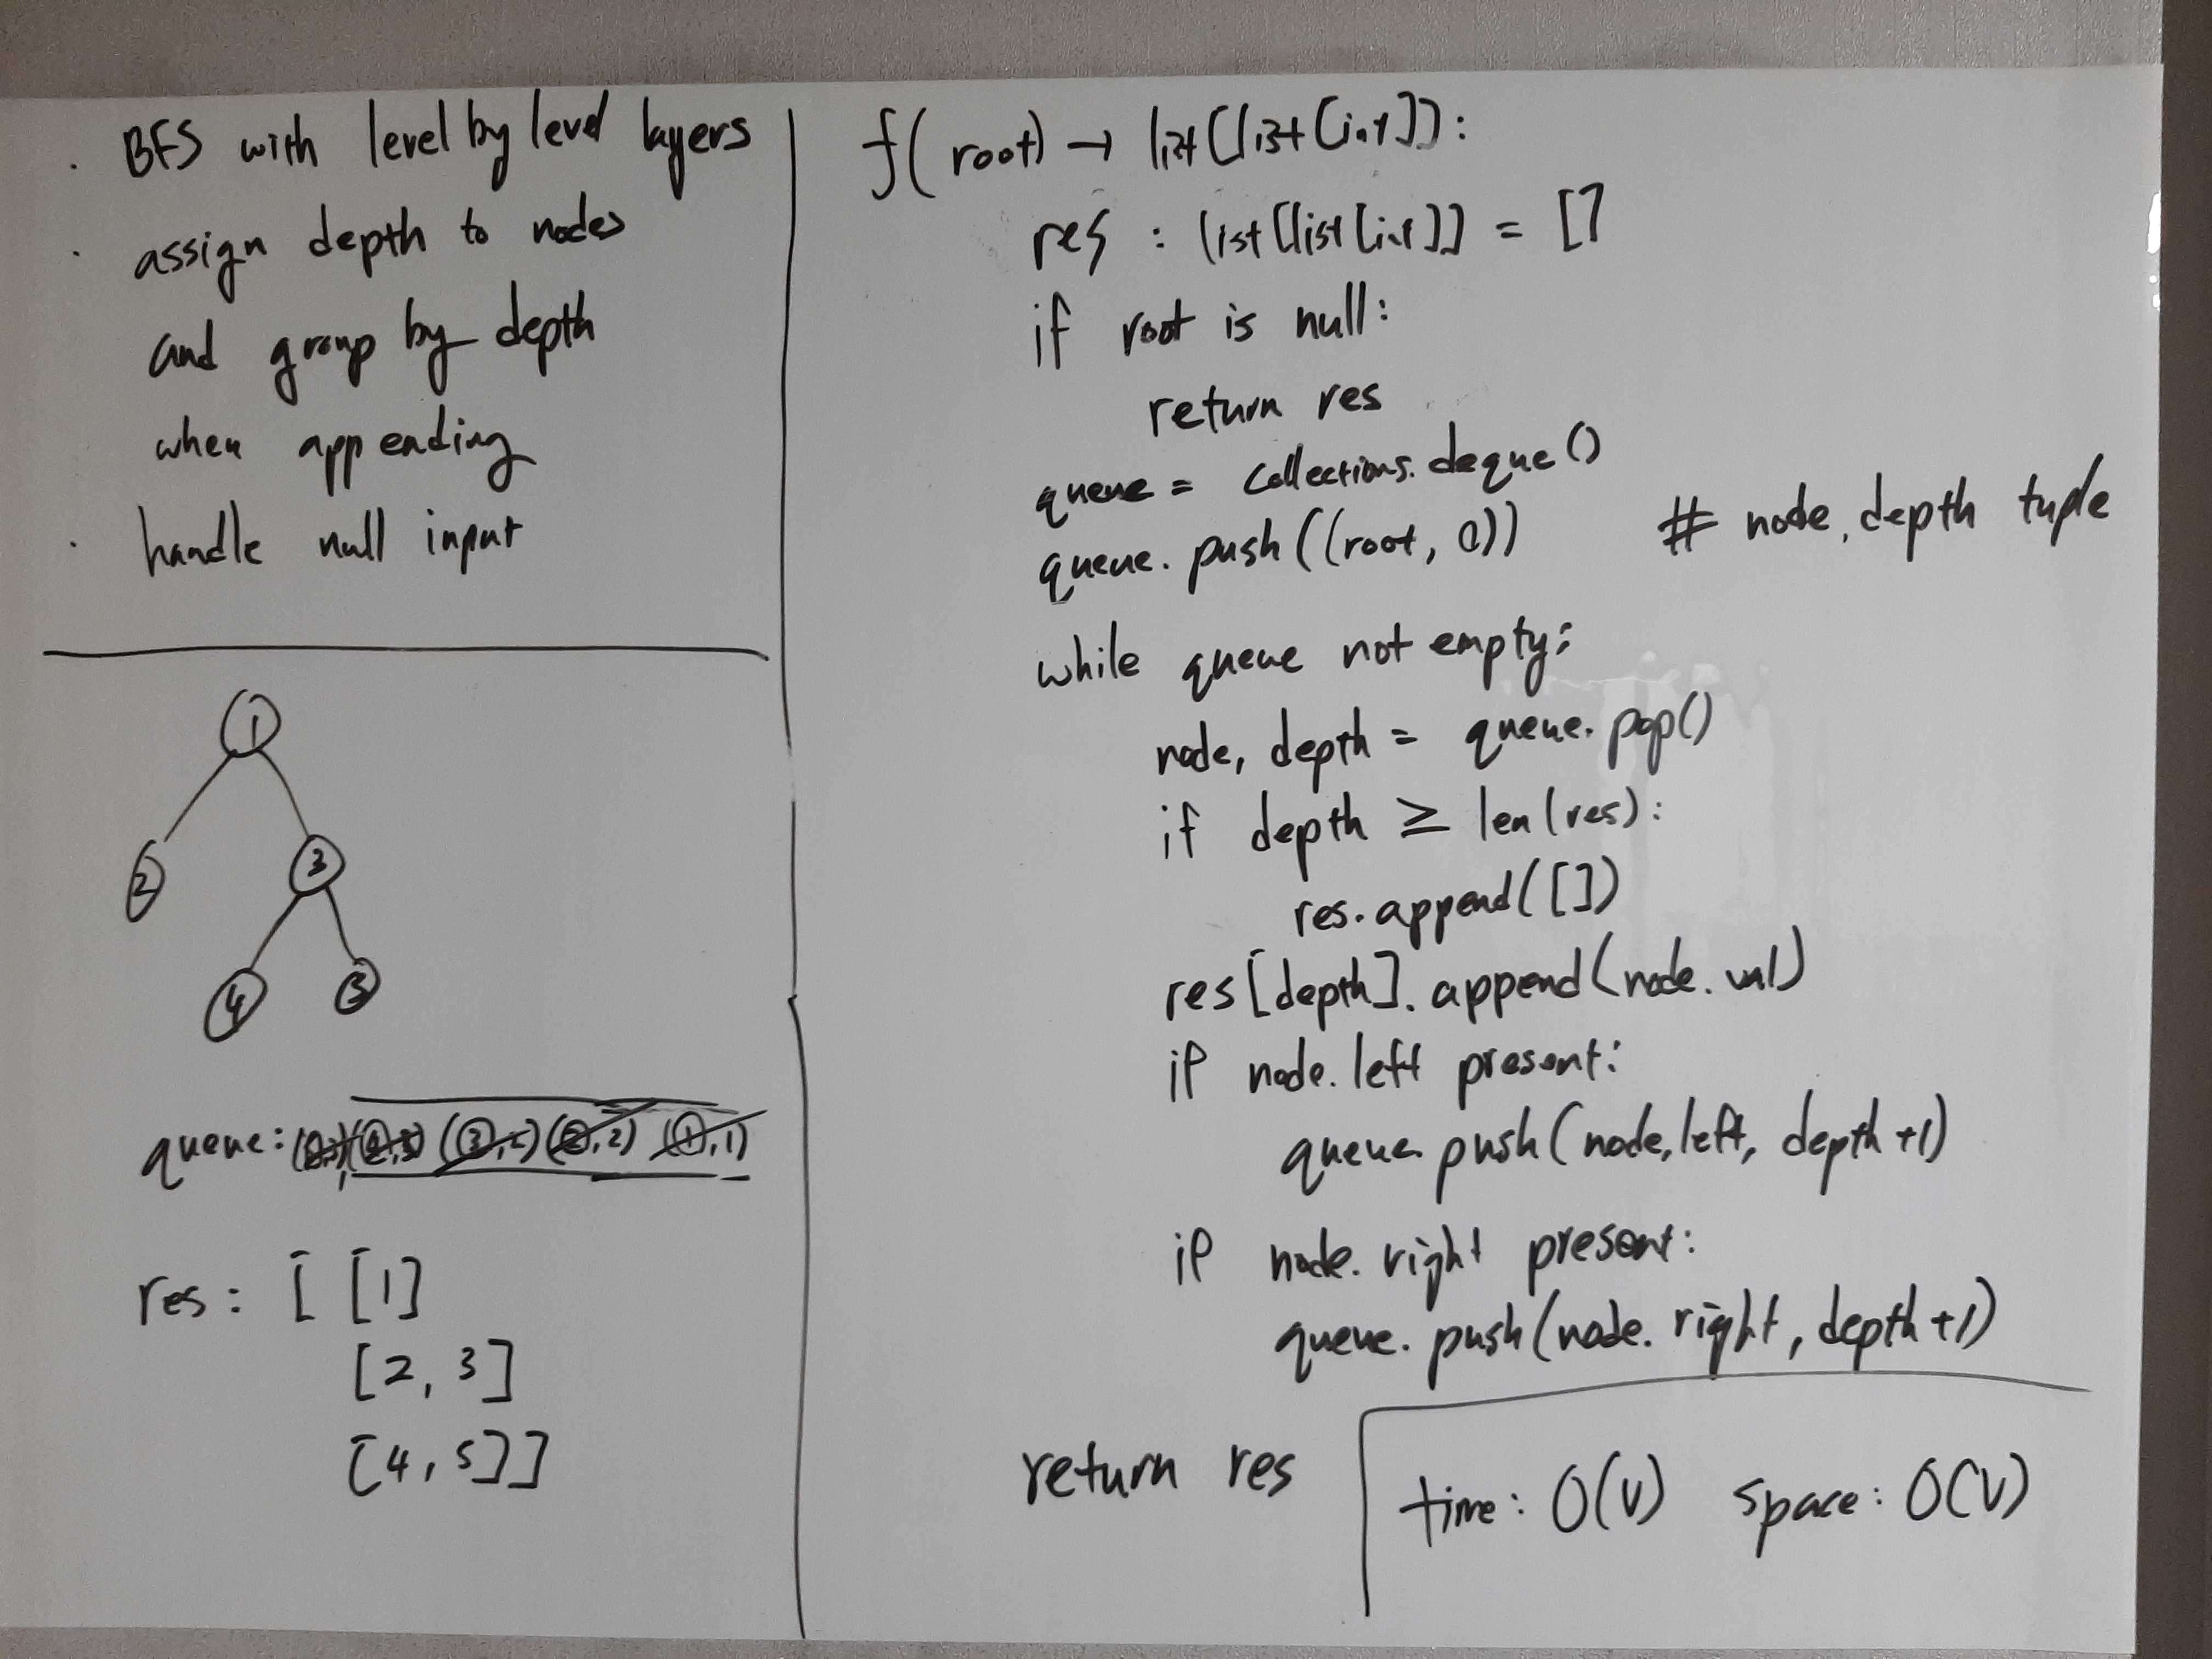 · BFS with level by level layers
· assign depth to nodes
and group by depth
when appending
· handle null input
1
2 3
4 5
queue: (2,2) (1,1)
res: [ [1]
[2, 3]
[4, 5]]
f(root) → list[list[int]]:
res : list[list[int]] = []
if root is null:
return res
queue = collections.deque()
queue.push((root, 0)) # node, depth tuple
while queue not empty:
node, depth = queue.pop()
if depth ≥ len(res):
res.append([])
res[depth].append(node.val)
if node.left present:
queue.push(node.left, depth+1)
if node.right present:
queue.push(node.right, depth+1)
return res
time: O(V) space: O(V)